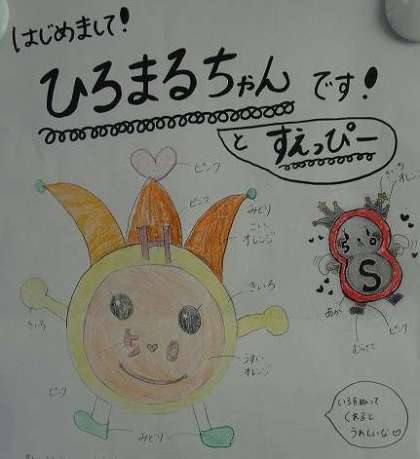 はじめまして!
ひろまるちゃん です!
と すえっぴー
ピンク
ピンク
みどり
こいオレンジ
H
きいろ
きいろ
ちゅ
うすい
オレンジ
ピンク
みどり
オレンジ
S
あか
むらさき
ピンク
いろをぬって
くれると
うれしいな♡